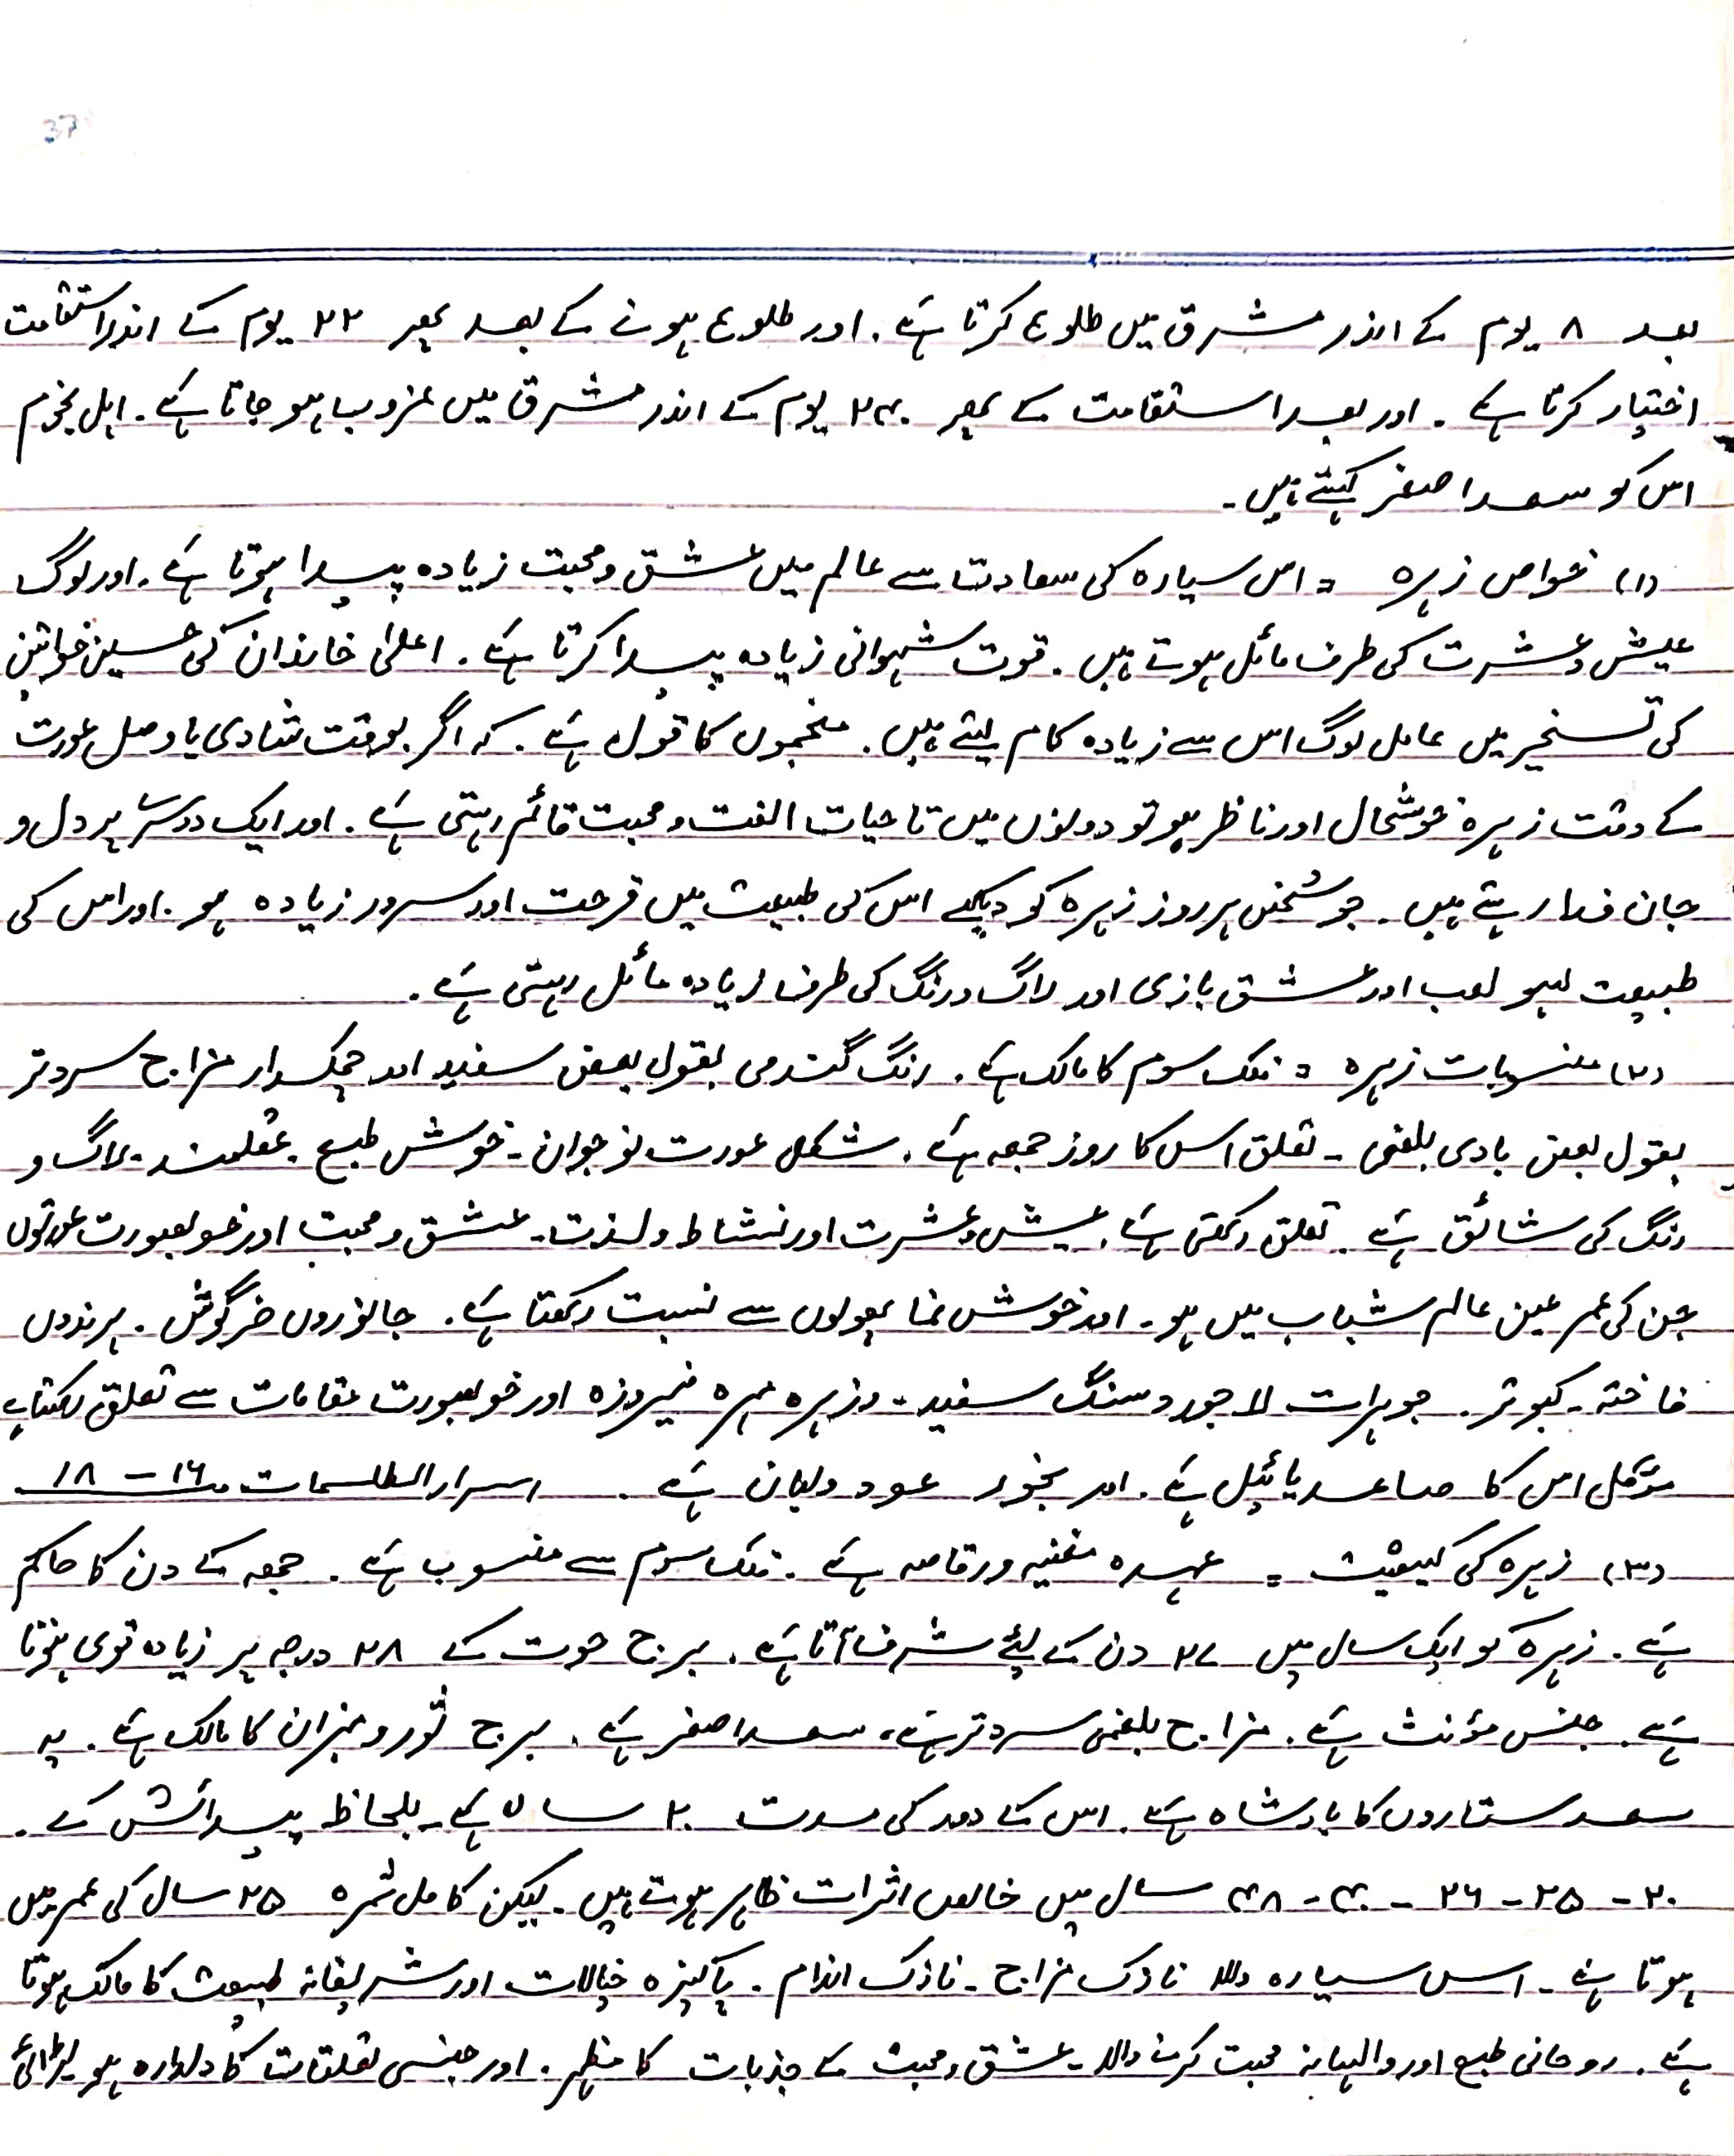 37
بعد ۸ یوم کے اندر مشرق میں طلوع کرتا ہے۔ اور طلوع ہونے کے بعد پھر ۲۲ یوم کے اندر استقامت
اختیار کرتا ہے۔ اور بعد استقامت کے پھر ۲۴۰ یوم کے اندر مشرق میں غروب ہو جاتا ہے۔ اہل نجوم
اس کو سعد اصغر کہتے ہیں۔
(۱) خواص زہرہ = اس سیارہ کی سعادت سے عالم میں عشق و محبت زیادہ پیدا ہوتا ہے۔ اور لوگ
عیش و عشرت کی طرف مائل ہوتے ہیں۔ قوت شہوانی زیادہ پیدا کرتا ہے۔ اعلیٰ خاندان کی حسین خواتین
کی تسخیر میں عامل لوگ اس سے زیادہ کام لیتے ہیں۔ منجموں کا قول ہے۔ کہ اگر بوقت شادی یا وصل عورت
کے وقت زہرہ خوشحال اور ناظر ہو تو دونوں میں تا حیات الفت و محبت قائم رہتی ہے۔ اور ایک دوسرے پر دل و
جان فدا رہتے ہیں۔ جو شخص ہر روز زہرہ کو دیکھے اس کی طبیعت میں فرحت اور سرور زیادہ ہو۔ اور اس کی
طبیعت لہو لعب اور عشق بازی اور راگ و رنگ کی طرف زیادہ مائل رہتی ہے۔
(۲) منسوبات زہرہ = فلک سوم کا مالک ہے۔ رنگ گندمی بقول بعض سفید اور چمکدار مزاج سرد تر
بقول بعض بادی بلغمی۔ تعلق اس کا روز جمعہ ہے۔ شکل عورت نوجوان۔ خوش طبع۔ عقلمند۔ راگ و
رنگ کی شائق ہے۔ تعلق رکھتی ہے۔ عیش و عشرت اور نشاط و لذت۔ عشق و محبت اور خوبصورت عورتوں
جن کی عمر عین عالم شباب میں ہو۔ اور خوش نما پھولوں سے نسبت رکھتا ہے۔ جانوروں خرگوش۔ پرندوں
فاختہ۔ کبوتر۔ جوہرات لاجورد سنگ سفید۔ و زہرہ مہرہ فیروزہ اور خوبصورت مقامات سے تعلق رکھتا ہے
مؤکل اس کا صاعدیائیل ہے۔ اور بخور عود و لبان ہے۔ اسرار الطلسمات ص ۱۶ – ۱۸
(۳) زہرہ کی کیفیت = عہدہ مغنیہ و رقاصہ ہے۔ فلک سوم سے منسوب ہے۔ جمعہ کے دن کا حاکم
ہے۔ زہرہ کو ایک سال میں ۲۷ دن کے لئے شرف آتا ہے۔ برج حوت کے ۲۸ درجہ پر زیادہ قوی ہوتا
ہے۔ جنس مؤنث ہے۔ مزاج بلغمی سرد تر ہے، سعد اصغر ہے۔ برج ثور و میزان کا مالک ہے۔ یہ
سعد ستاروں کا بادشاہ ہے۔ اس کے دور کی مدت ۲۰ سال ہے۔ بلحاظ پیدائش کے۔
۲۰ – ۲۵ – ۲۶ – ۴۰ – ۴۸ سال میں خالص اثرات ظاہر ہوتے ہیں۔ لیکن کامل ثمرہ ۲۵ سال کی عمر میں
ہوتا ہے۔ اس سیارہ والا نازک مزاج۔ نازک اندام۔ پاکیزہ خیالات اور شریفانہ طبیعت کا مالک ہوتا
ہے۔ روحانی طبع اور والہانہ محبت کرنے والا۔ عشق و محبت کے جذبات کا مظہر۔ اور جنسی تعلقات کا دلدارہ ہو۔ لڑائی